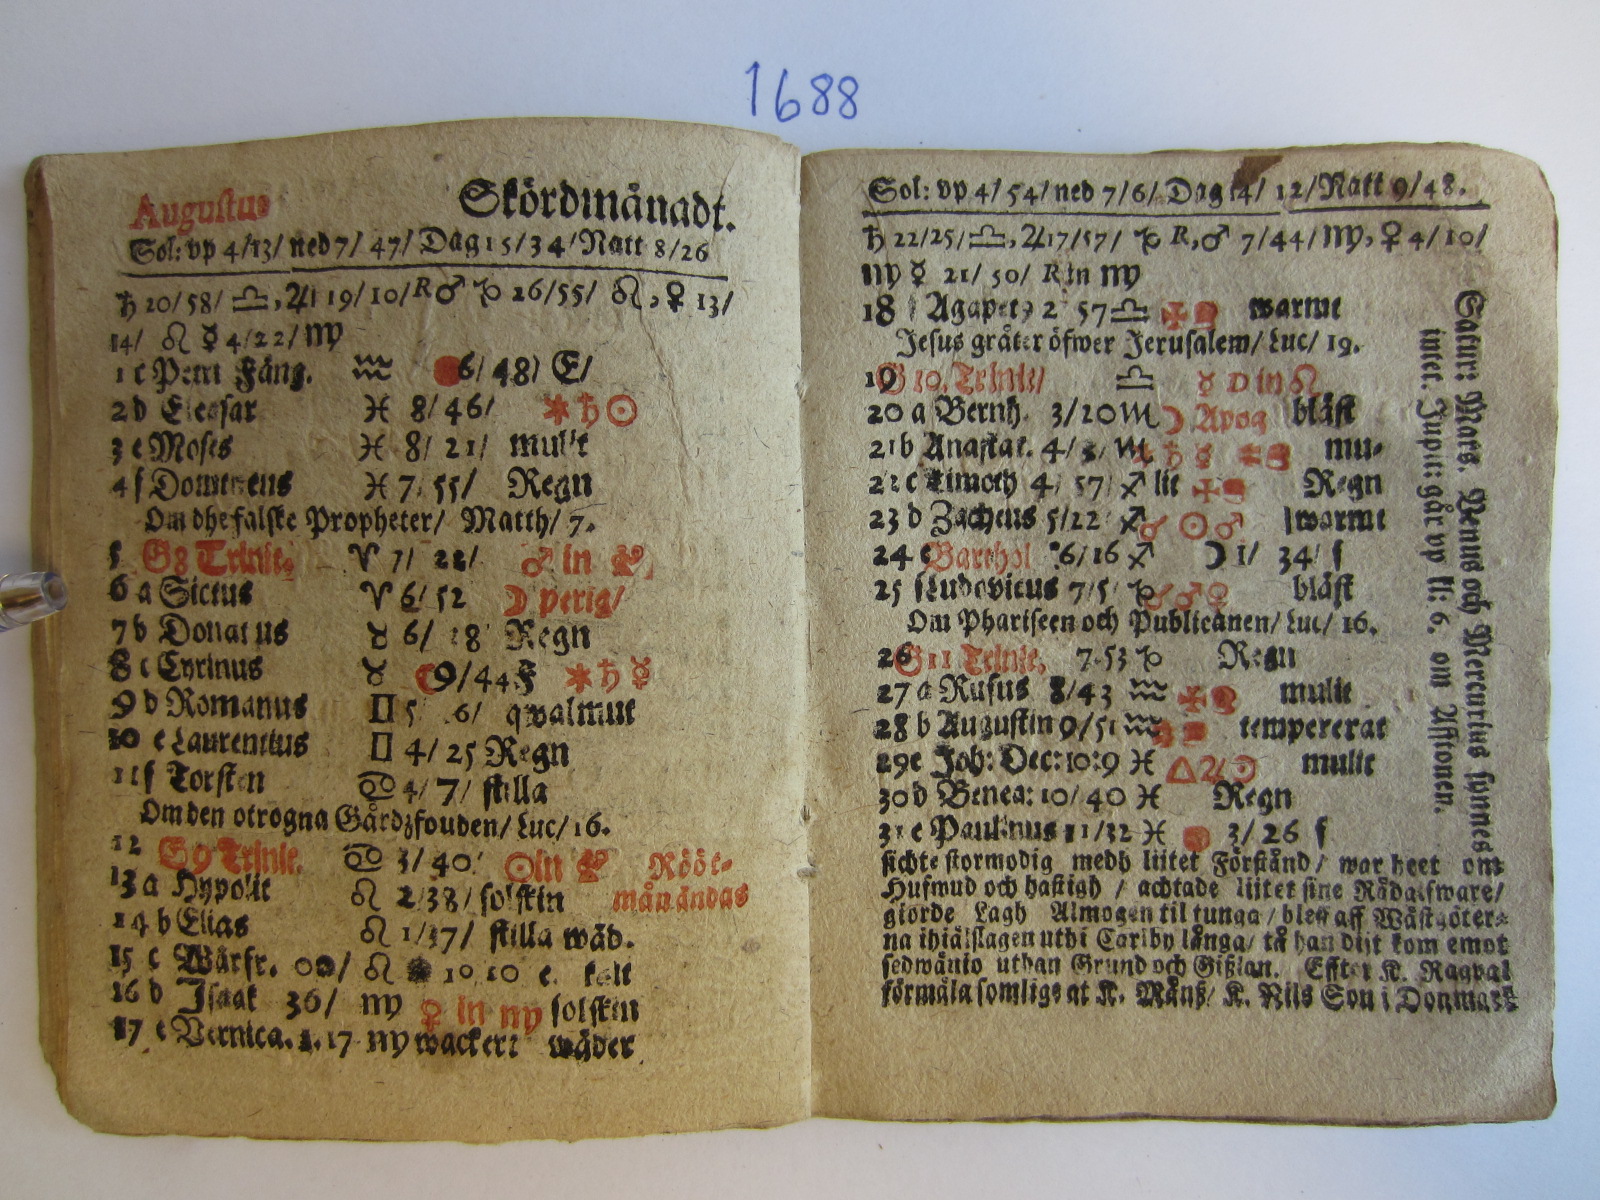 1688
Augustus Skördmånadt.
Sol: vp 4/13/ ned 7/ 47/ Dag 15/34/ Natt 8/26
♄ 20/58/ ♎, ♃ 19/10/ R ♂ ♑ 26/55/ ♌, ♀ 13/
14/ ♌ ☿ 4/22/ ♍
1 c Petri Fäng. ♒ 6/ 48) E/
2 d Eleasar ♓ 8/ 46/ ✶ ♄ ☉
3 e Moses ♓ 8/ 21/ mulit
4 f ♓ 7/ 55/ Regn
Om dhe falske Propheter/ Matth/ 7.
5 G 8 Trinit. ♈ 7/ 22/ ♂ in ♌
6 a Sictus ♈ 6/ 52 ☽ perig/
7 b Donatus ♉ 6/ 18 Regn
8 c Cyrinus ♉ ☾ 9/44 F ✶ ♄ ☿
9 d Romanus ♊ 5 6/ qwalmut
10 e Laurentius ♊ 4/ 25 Regn
11 f Torsten ♋ 4/ 7/ stilla
Om den otrogna Gårdzfouden/ Luc/ 16.
12 G 9 Trinit. ♋ 3/ 40 ☉ in ♌ Rööt-
13 a Hypolit ♌ 2/38/ solskin månandas
14 b Elias ♌ 1/37/ stilla wäd.
15 c Wårfr. ♌ 10 10 e. kalt
16 d Isaak 36/ ♍ ♀ in ♍ solskin
17 e Vernica. 1. 17 ♍ wackert wäder
Sol: vp 4/ 54/ ned 7/6/ Dag 14/ 12/ Natt 9/48.
♄ 22/25/ ♎, ♃ 17/57/ ♑ R, ♂ 7/44/ ♍, ♀ 4/10/
♍ ☿ 21/ 50/ R in ♍
18 f Agapet 2 57 ♎ warmt
Jesus gräter öfwer Jerusalem/ Luc/ 19.
19 G 10. Trinit/ ♎ ☿ D in ♌
20 a Bernh. 3/20 ♏ ☽ Apog blåst
21 b Anastas. 4/ ♏ ♄ ☿ mu-
22 c Timoth 4/ 57/ ♐ lit Regn
23 d Zacheus 5/22 ♐ ☌ ☉ ♂ warmt
24 e Barthol 6/16 ♐ ☽ 1/ 34/ f
25 f Ludovicus 7/5/ ♑ ☌ ♂ ♀ blåst
Om Phariseen och Publicanen/ Luc/ 16.
26 G 11 Trinit. 7.53 ♑ Regn
27 a Rufus 8/43 ♒ mulit
28 b Augustin 9/51 ♒ tempererat
29 c Joh: Dec: 10:9 ♓ △ ♃ ☉ mulit
30 d Benea: 10/ 40 ♓ Regn
31 e Paulinus 11/32 ♓ 3/ 26 f
sichte stormodig medh liitet Förstånd/ war heet om
Hufwud och hastigh / achtade liitet sine Rådgifware/
giorde Lagh Almogen til tunga / bleff aff Wästgöter-
na ihiälslagen uthi Carlby långa/ tå han diit kom emot
sedwänio uthan Grund och Gißlan. Effter K. Ragval
förmäla somlige at K. Månß/ K. Nils Son i Donmark
Satur: Mars, Venus och Mercurius synnes
intet. Jupit: går vp kl: 6. om Afftonen.